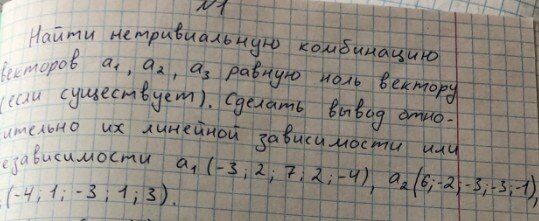 №1
Найти нетривиальную комбинацию
векторов a1, a2, a3 равную ноль вектору
(если существует). Сделать вывод отно-
ительно их линейной зависимости или
езависимости a1 (-3; 2; 7; 2; -4), a2 (6; -2; -3; -3; -1),
(-4; 1; -3; 1; 3).